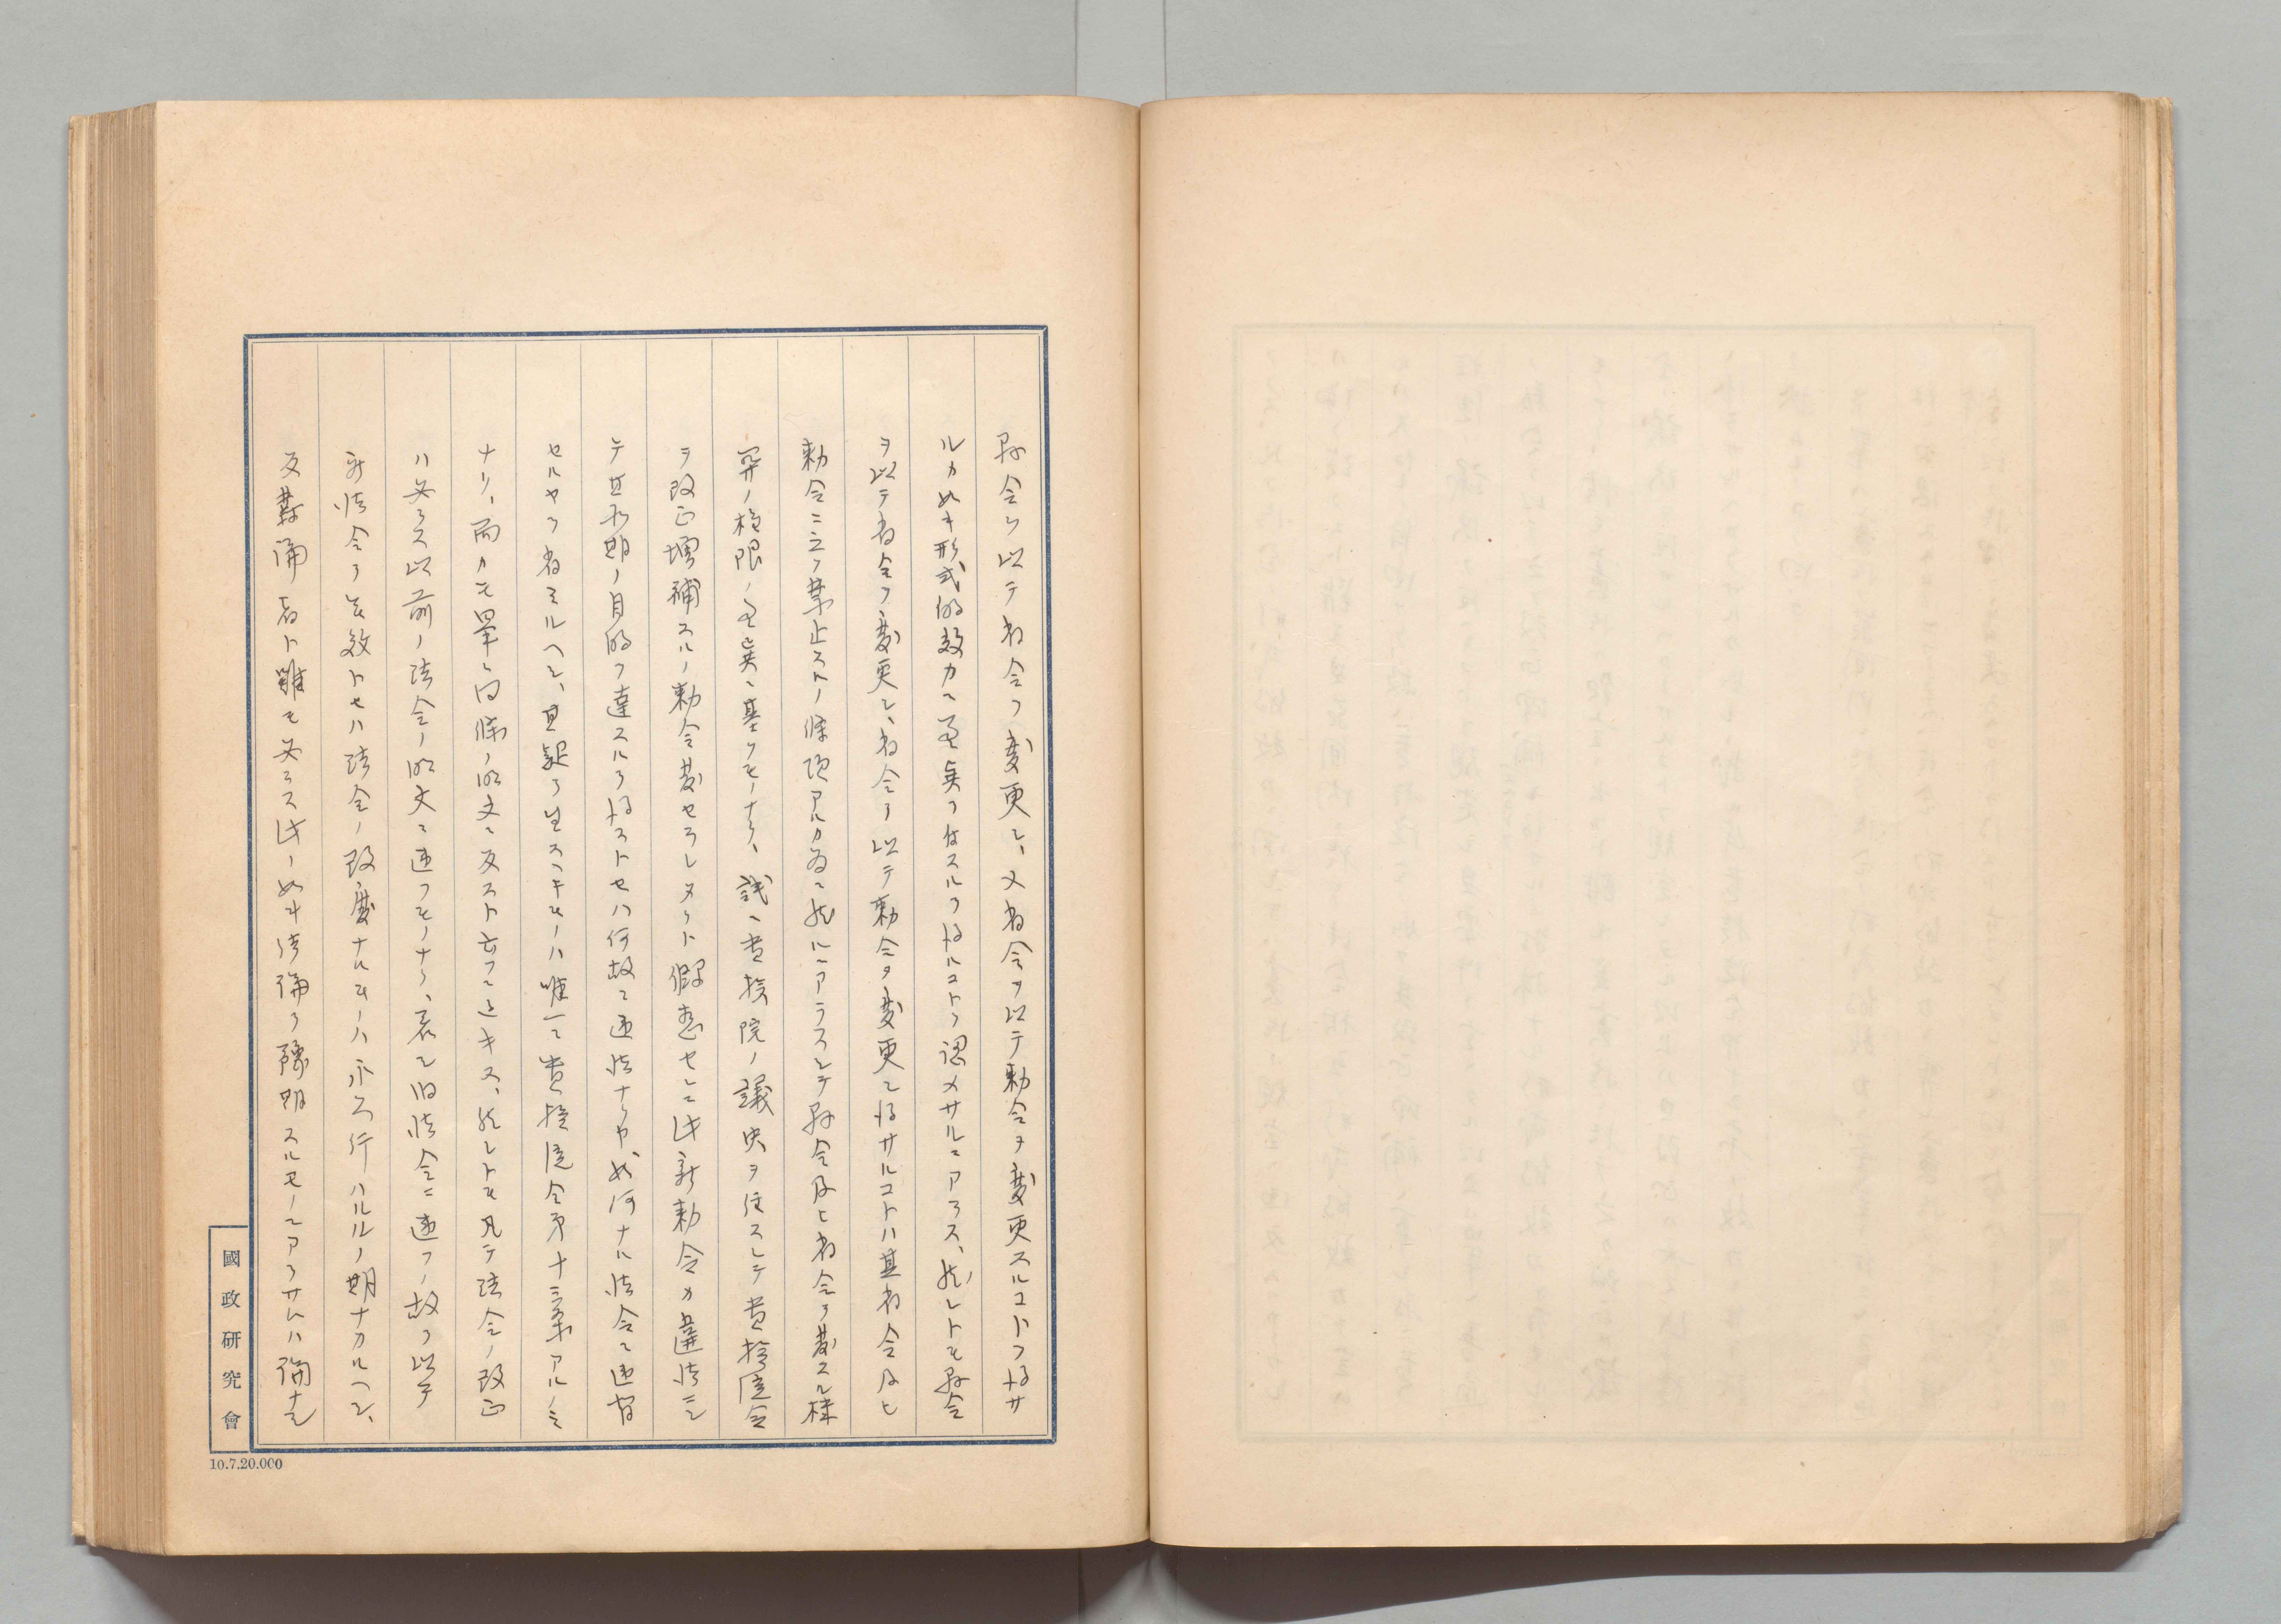 縣令ヲ以テ省令ヲ変更シ、又省令ヲ以テ勅令ヲ変更スルコトヲ得サ
ルカ如キ形式的効力ニ差異ヲ付スルヲ得ルコトヲ認メサルニアラス、然レトモ縣令
ヲ以テ省令ヲ変更シ、省令ヲ以テ勅令ヲ変更シ得サルコトハ其省令及ヒ
勅令ニ之ヲ禁止スルノ條項アルカ為ニ然ルニアラスシテ縣令及ヒ省令ヲ発スル様
ノ権限ノ差異ニ基クモノナリ、試ニ貴族院ノ議決ヲ俟スシテ貴族院令
ヲ改正増補スルノ勅令発セラレタリト假想センニ此新勅令カ違法ニシ
テ其所期ノ目的ヲ達スルヲ得ストセハ何故ニ違法ナリヤ如何ナル法令ニ違背
セルヤヲ省ミルヘシ、其疑ヲ生スヘキモノハ唯一ニ貴族院令第十三条アルノミ
ナリ、而カモ単ニ同條ノ明文ニ反スト云フニ過キス、然レトモ凡テ法令ノ改正
ハ必ラス以前ノ法令ノ明文ニ違フモノナリ、若シ旧法令ニ違フノ故ヲ以テ
新法令ヲ無効トセハ法令ノ改廃ナルモノハ永久行ハルルノ期ナカルヘシ、
反対論者ト雖モ必ラス此ノ如キ法論ヲ豫期スルモノニアラサレハ論ナシ
國政研究會
10.7.20.000